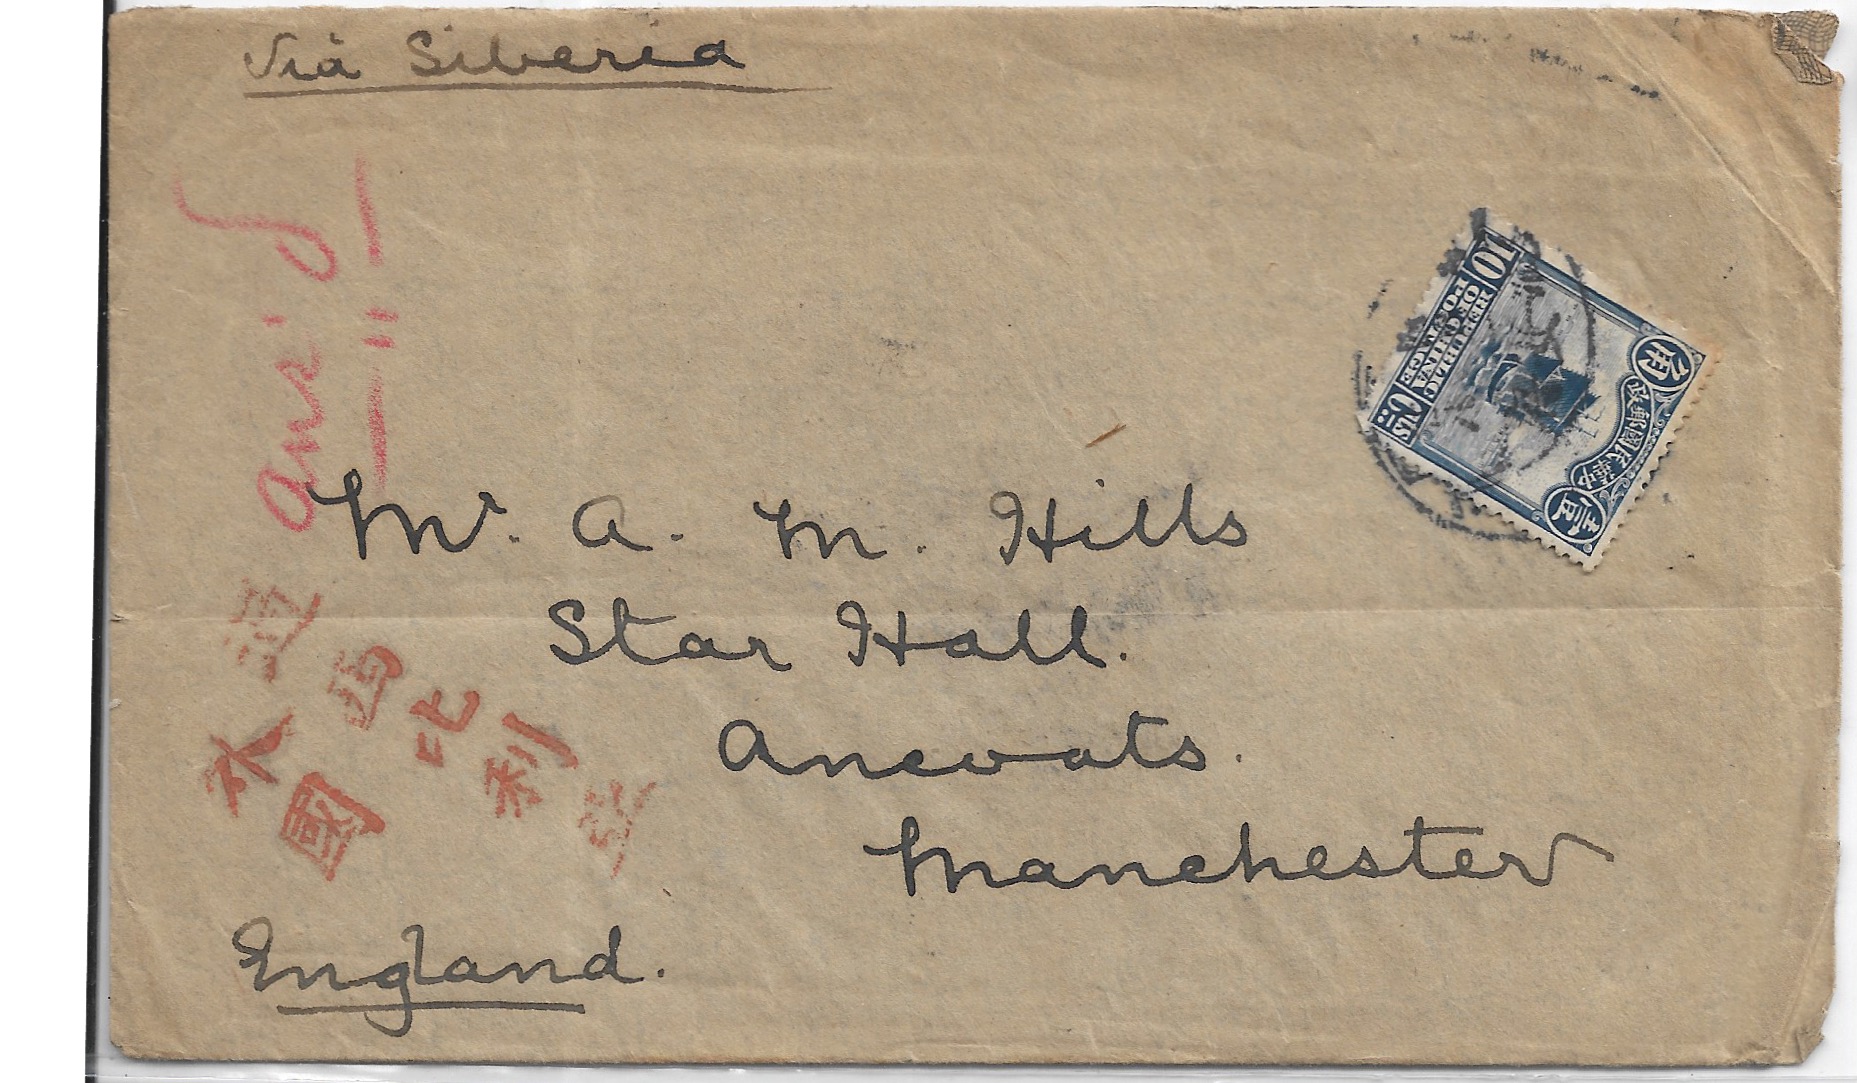 Via Siberia
ans'd
Mr. A. M. Hills
Star Hall.
Ancoats.
Manchester
England.
西比利亞
英國
10 CTS
REPUBLIC
OF CHINA
POSTAGE
中華民國郵政
壹 角